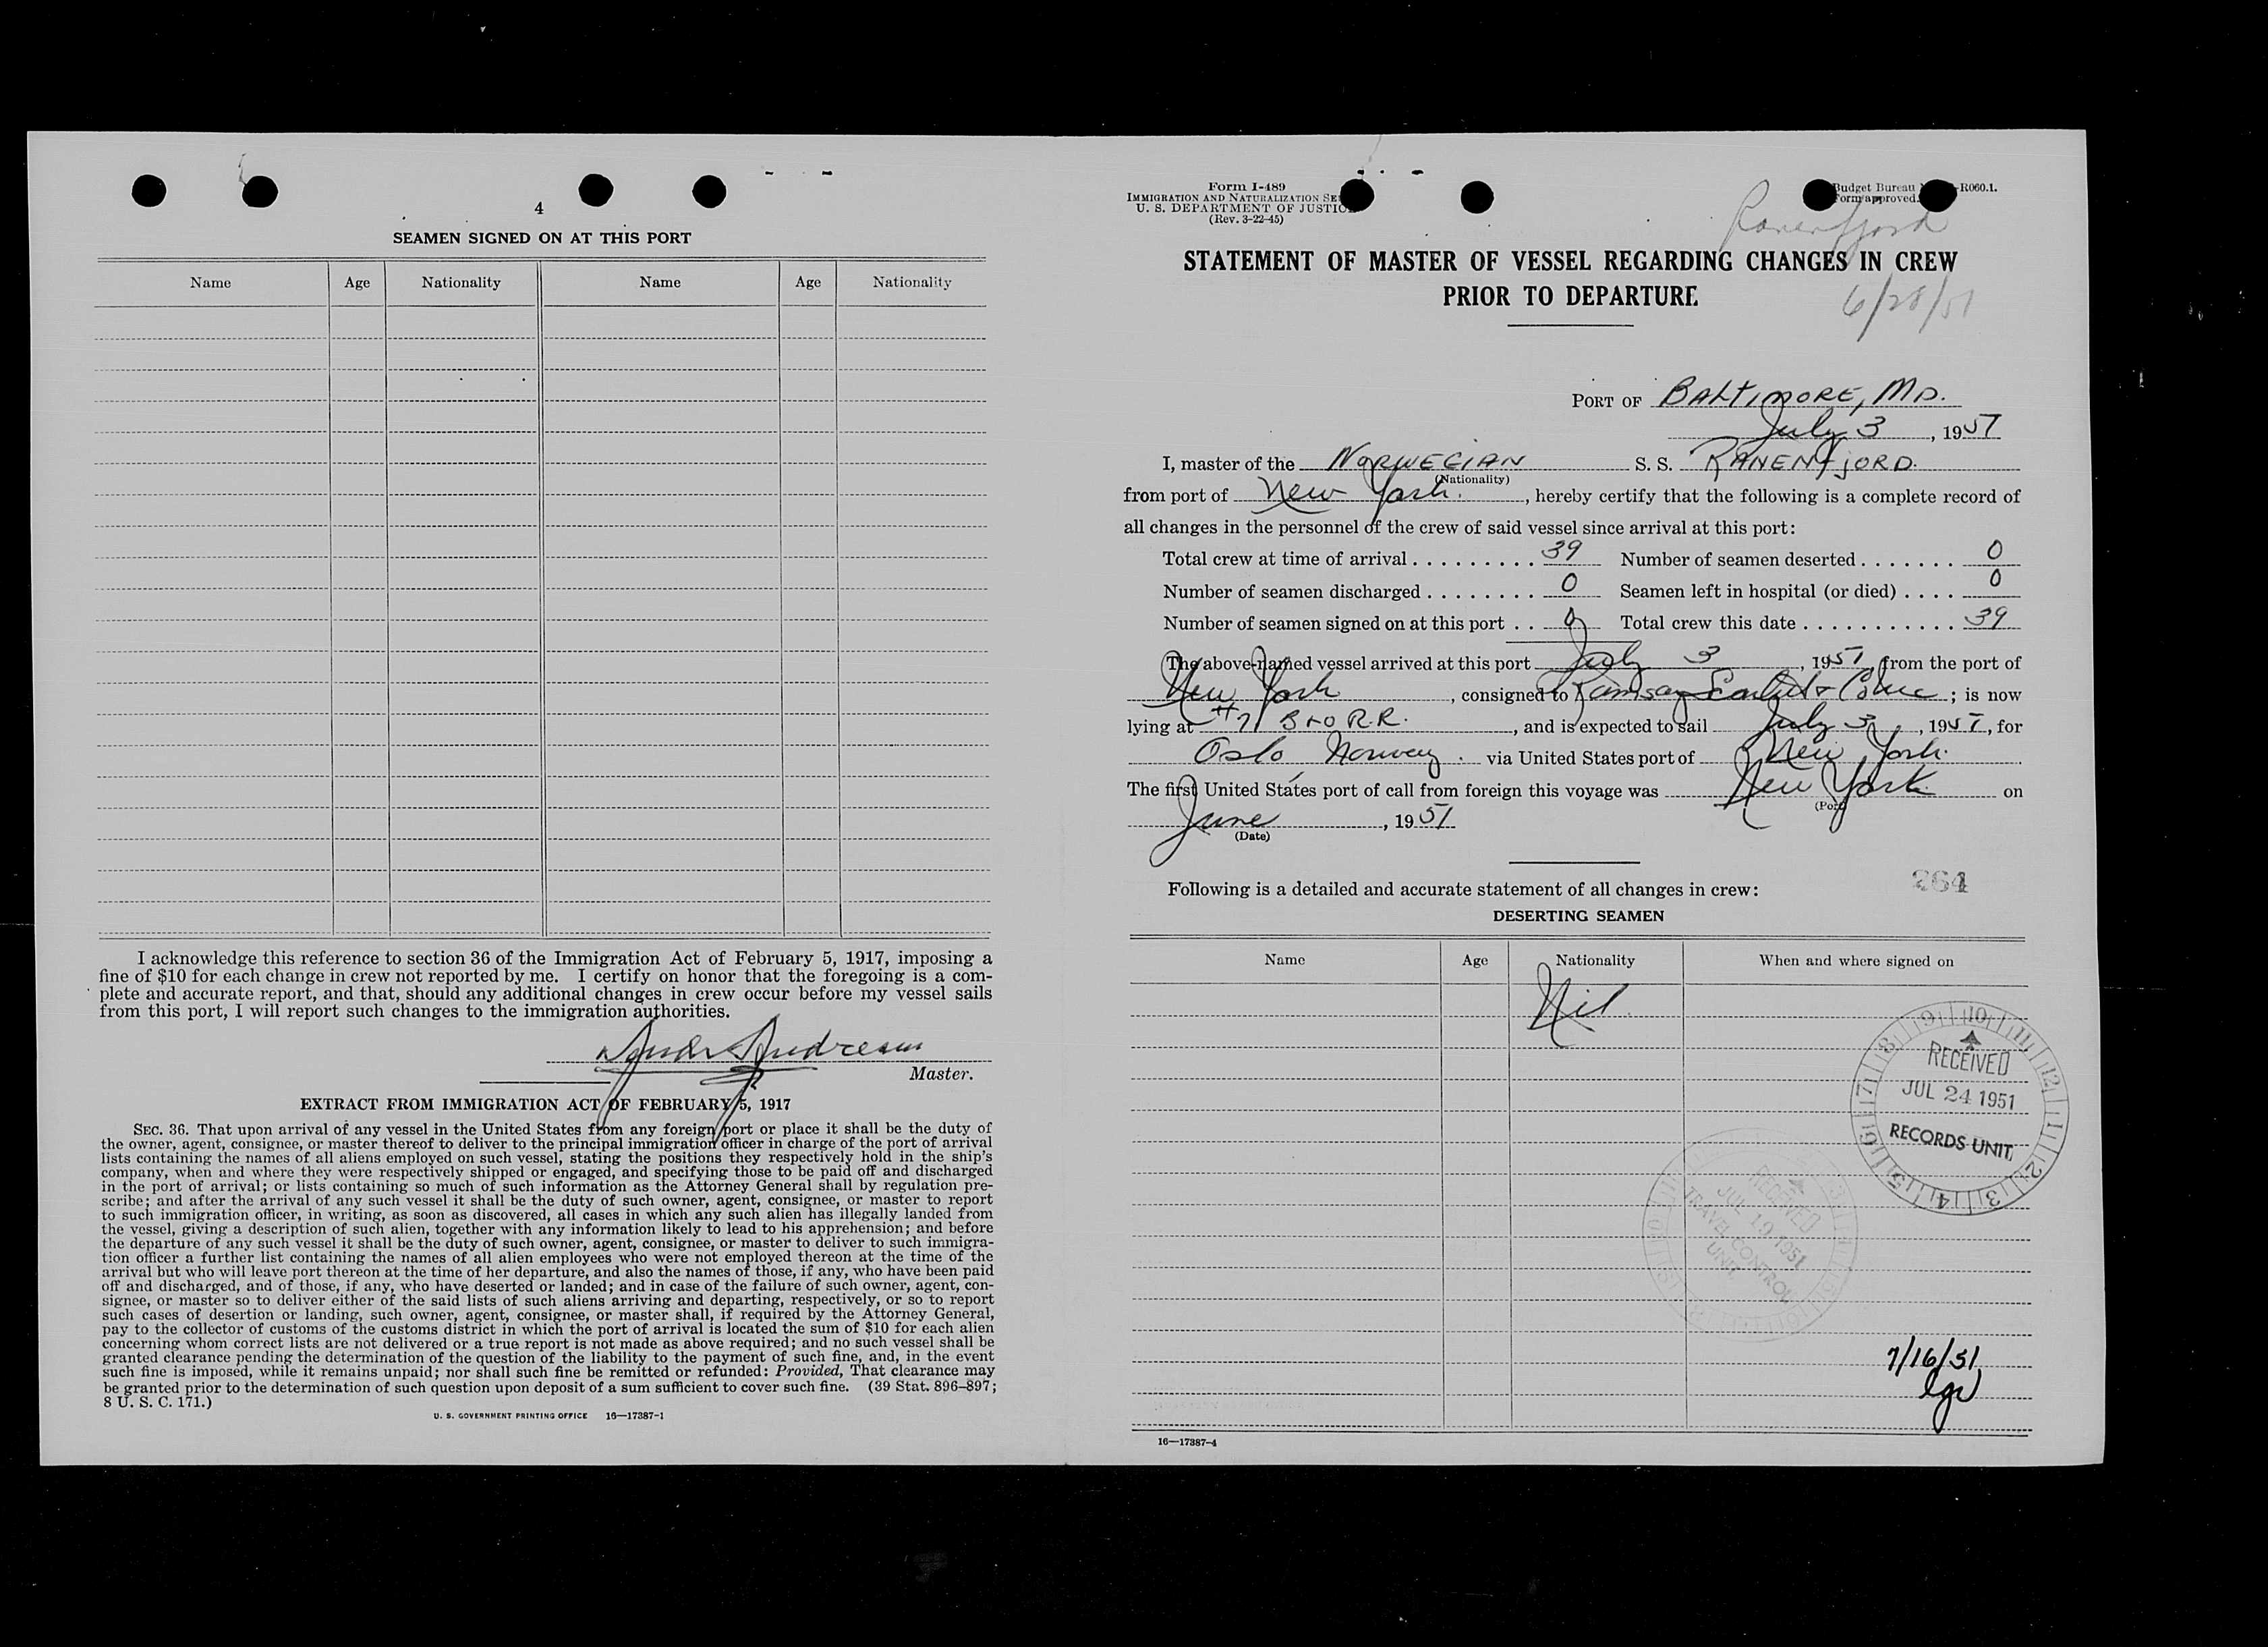 4
SEAMEN SIGNED ON AT THIS PORT
Name Age Nationality Name Age Nationality
I acknowledge this reference to section 36 of the Immigration Act of February 5, 1917, imposing a
fine of $10 for each change in crew not reported by me. I certify on honor that the foregoing is a com-
plete and accurate report, and that, should any additional changes in crew occur before my vessel sails
from this port, I will report such changes to the immigration authorities.
Master.
EXTRACT FROM IMMIGRATION ACT OF FEBRUARY 5, 1917
SEC. 36. That upon arrival of any vessel in the United States from any foreign port or place it shall be the duty of
the owner, agent, consignee, or master thereof to deliver to the principal immigration officer in charge of the port of arrival
lists containing the names of all aliens employed on such vessel, stating the positions they respectively hold in the ship's
company, when and where they were respectively shipped or engaged, and specifying those to be paid off and discharged
in the port of arrival; or lists containing so much of such information as the Attorney General shall by regulation pre-
scribe; and after the arrival of any such vessel it shall be the duty of such owner, agent, consignee, or master to report
to such immigration officer, in writing, as soon as discovered, all cases in which any such alien has illegally landed from
the vessel, giving a description of such alien, together with any information likely to lead to his apprehension; and before
the departure of any such vessel it shall be the duty of such owner, agent, consignee, or master to deliver to such immigra-
tion officer a further list containing the names of all alien employees who were not employed thereon at the time of the
arrival but who will leave port thereon at the time of her departure, and also the names of those, if any, who have been paid
off and discharged, and of those, if any, who have deserted or landed; and in case of the failure of such owner, agent, con-
signee, or master so to deliver either of the said lists of such aliens arriving and departing, respectively, or so to report
such cases of desertion or landing, such owner, agent, consignee, or master shall, if required by the Attorney General,
pay to the collector of customs of the customs district in which the port of arrival is located the sum of $10 for each alien
concerning whom correct lists are not delivered or a true report is not made as above required; and no such vessel shall be
granted clearance pending the determination of the question of the liability to the payment of such fine, and, in the event
such fine is imposed, while it remains unpaid; nor shall such fine be remitted or refunded: Provided, That clearance may
be granted prior to the determination of such question upon deposit of a sum sufficient to cover such fine. (39 Stat. 896–897;
8 U. S. C. 171.)
U. S. GOVERNMENT PRINTING OFFICE 16—17387-1
Form I-489
IMMIGRATION AND NATURALIZATION SE
U. S. DEPARTMENT OF JUSTIC
(Rev. 3-22-45)
Budget Bureau -R060.1.
Form approved.
Ranenfjord
STATEMENT OF MASTER OF VESSEL REGARDING CHANGES IN CREW
PRIOR TO DEPARTURE
6/28/51
PORT OF BALTIMORE, MD.
July 3, 1951
I, master of the NORWEGIAN S. S. RANENFJORD.
(Nationality)
from port of New York., hereby certify that the following is a complete record of
all changes in the personnel of the crew of said vessel since arrival at this port:
Total crew at time of arrival . . . . . . . . . 39 Number of seamen deserted . . . . . . . 0
Number of seamen discharged . . . . . . . . 0 Seamen left in hospital (or died) . . . . 0
Number of seamen signed on at this port . . 0 Total crew this date . . . . . . . . . . . 39
The above-named vessel arrived at this port July 3, 1951, from the port of
New York, consigned to Ramsay Scarlett & Co Inc; is now
lying at #7 B+O R.R., and is expected to sail July 3, 1951, for
Oslo Norway. via United States port of New York.
The first United States port of call from foreign this voyage was New York on
(Port)
June, 1951
(Date)
Following is a detailed and accurate statement of all changes in crew:
264
DESERTING SEAMEN
Name Age Nationality When and where signed on
Nil
RECEIVED
JUL 24 1951
RECORDS UNIT
RECEIVED
JUL 19 1951
TRAVEL CONTROL
UNIT
7/16/51
16—17387-4